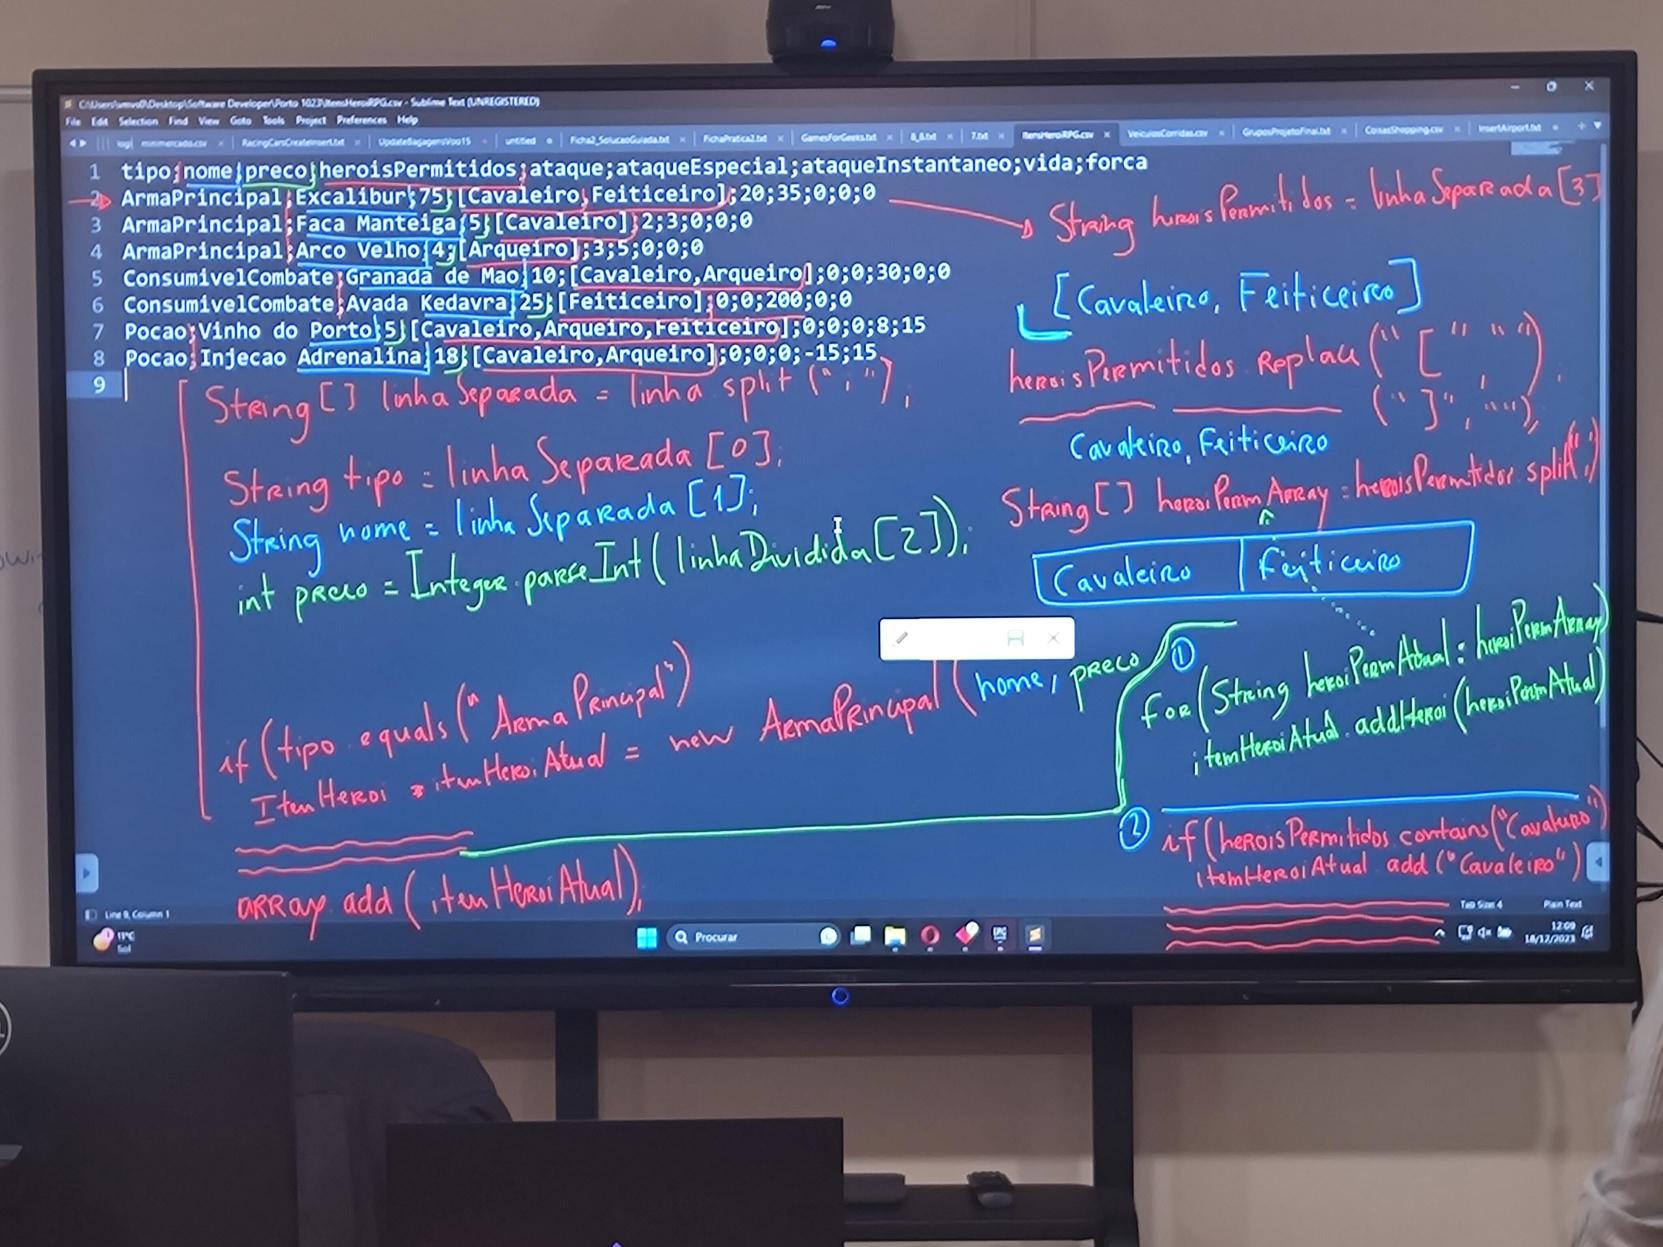 C:\Users\umvs0\Desktop\Software Developer\Porto 1023\ItensHeroiRPG.csv - Sublime Text (UNREGISTERED)
File Edit Selection Find View Goto Tools Project Preferences Help
minimercado.csv RacingCarsCreateInsert.txt UpdateBagagensVoo15 untitled Ficha2_SolucaoGuiada.txt FichaPratica2.txt GamesForGeeks.txt 8_8.txt 7.txt ItensHeroiRPG.csv VeiculosCorridas.csv GruposProjetoFinal.txt CoisasShopping.csv InsertAirport.txt
1 tipo;nome;preco;heroisPermitidos;ataque;ataqueEspecial;ataqueInstantaneo;vida;forca
2 ArmaPrincipal;Excalibur;75;[Cavaleiro,Feiticeiro];20;35;0;0;0
3 ArmaPrincipal;Faca Manteiga;5;[Cavaleiro];2;3;0;0;0
4 ArmaPrincipal;Arco Velho;4;[Arqueiro];3;5;0;0;0
5 ConsumivelCombate;Granada de Mao;10;[Cavaleiro,Arqueiro];0;0;30;0;0
6 ConsumivelCombate;Avada Kedavra;25;[Feiticeiro];0;0;200;0;0
7 Pocao;Vinho do Porto;5;[Cavaleiro,Arqueiro,Feiticeiro];0;0;0;8;15
8 Pocao;Injecao Adrenalina;18;[Cavaleiro,Arqueiro];0;0;0;-15;15
9
String[] linhaSeparada = linha split(";");
String tipo = linhaSeparada[0];
String nome = linhaSeparada[1];
int preco = Integer.parseInt(linhaDividida[2]);
if (tipo equals("ArmaPrincipal")
ItemHeroi itemHeroiAtual = new ArmaPrincipal(nome, preco
array add(itemHeroiAtual);
String heroisPermitidos = linhaSeparada[3]
[Cavaleiro, Feiticeiro]
heroisPermitidos Replace("[", "");
("]", "");
Cavaleiro, Feiticeiro
String[] heroiPermArray = heroisPermitidos split(",")
Cavaleiro Feiticeiro
1
for(String heroiPermAtual : heroiPermArray)
itemHeroiAtual.addHeroi(heroiPermAtual)
2
if(heroisPermitidos contains("Cavaleiro")
itemHeroiAtual add("Cavaleiro")
Line 9, Column 1
Tab Size: 4 Plain Text
13°C
Sol
Procurar
12:09
18/12/2023